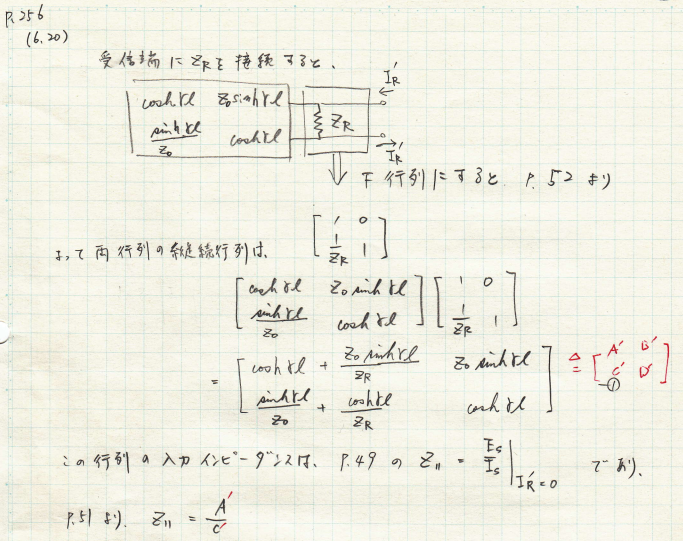 P.256
(6.20)
受信端に Z_R を接続すると、
I_R'
cosh γl   Z_0 sinh γl
sinh γl / Z_0   cosh γl
Z_R
I_R'
F 行列にすると P.52 より
[ 1   0 ; 1/Z_R   1 ]
よって両行列の縦続行列は、
[ cosh γl   Z_0 sinh γl ; sinh γl / Z_0   cosh γl ] [ 1   0 ; 1/Z_R   1 ]
= [ cosh γl + Z_0 sinh γl / Z_R   Z_0 sinh γl ; sinh γl / Z_0 + cosh γl / Z_R   cosh γl ] ≜ [ A' B' ; C' D' ]
①
この行列の入力インピーダンスは、P.49 の Z_11 = E_s / I_s |_{I_R'=0} であり、
P.51 より、Z_11 = A' / C'